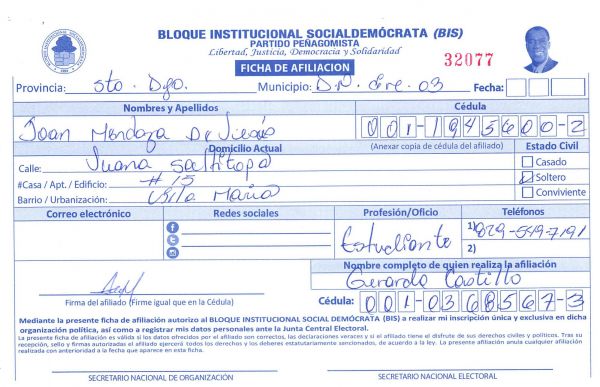 BLOQUE INSTITUCIONAL SOCIALDEMÓCRATA (BIS)
PARTIDO PEÑAGOMISTA
Libertad, Justicia, Democracia y Solidaridad
FICHA DE AFILIACION
32077
Provincia: Sto. Dgo. Municipio: D.N. Cire. 03 Fecha:
Nombres y Apellidos Cédula
Joan Mendoza De Jesús 001-1945600-2
Domicilio Actual (Anexar copia de cédula del afiliado) Estado Civil
Calle: Juana Saltitopa Casado
#Casa / Apt. / Edificio: # 15 Soltero
Barrio / Urbanización: Villa Maria Conviviente
Correo electrónico Redes sociales Profesión/Oficio Teléfonos
Estudiante 1) 829-549-7191
2)
Nombre completo de quien realiza la afiliación
Gerardo Castillo
Firma del afiliado (Firme igual que en la Cédula) Cédula: 001-0368567-3
Mediante la presente ficha de afiliación autorizo al BLOQUE INSTITUCIONAL SOCIAL DEMÓCRATA (BIS) a realizar mi inscripción única y exclusiva en dicha
organización política, así como a registrar mis datos personales ante la Junta Central Electoral.
La presente ficha de afiliación es válida si los datos ofrecidos por el afiliado son correctos, las declaraciones veraces y si el afiliado tiene el disfrute de sus derechos civiles y políticos. Tras su
recepción, sello y firmas autorizadas el afiliado ejercerá todos los derechos y los deberes estatutariamente sancionados, de acuerdo a la ley. La presente afiliación anula cualquier afiliación
realizada con anterioridad a la fecha que aparece en esta ficha.
SECRETARIO NACIONAL DE ORGANIZACIÓN SECRETARIO NACIONAL ELECTORAL